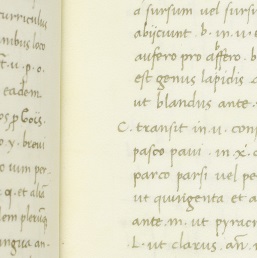 curriculus
nanibus loco
t. u. p. o.
eadem
o. x. brevi
io ium per
q. et aliā
dem plerūq
ingua an
a sursum vel sursu
abijciunt. b. in. u
aufero pro abfero. b
est genus lapidis a
ut blandus ante.
C. transit in. u. con
pasco pavi. in. x. c
parco parsi vel pe
ut quirigenta et a
ante. m. ut pyrac
.L. ut clarus. añ. n